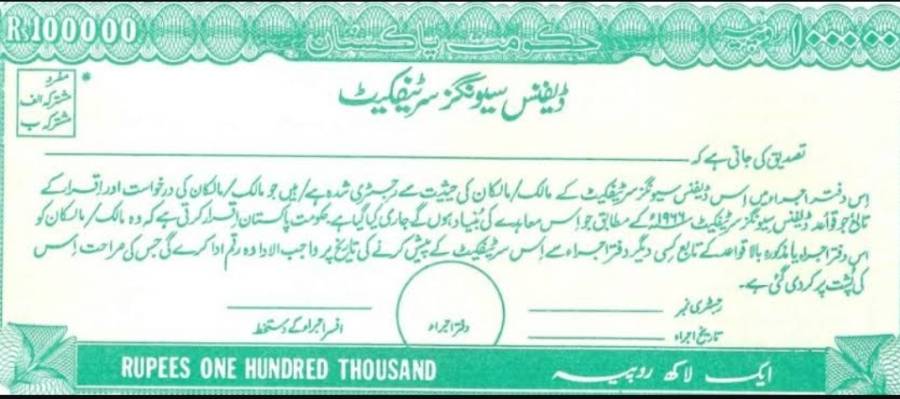 Rs.100000 حکومت پاکستان روپیہ ۱۰۰۰۰۰
ڈیفنس سیونگز سرٹیفکیٹ
*
مفرد
مشترکہ الف
مشترکہ ب
تصدیق کی جاتی ہے کہ
اس دفتر اجراء میں اِس ڈیفنس سیونگز سرٹیفکیٹ کے مالک/مالکان کی حیثیت سے رجسٹری شدہ ہے/ہیں جو مالک/مالکان کی درخواست اور اقرار کے
تابع جو قواعد ڈیفنس سیونگز سرٹیفکیٹ ۱۹۶۶ء کے مطابق جو اِس معاہدے کی بُنیاد ہوں گے جاری کیا گیا ہے۔ حکومت پاکستان اقرار کرتی ہے کہ وہ مالک/مالکان کو
اس دفتر اجراء یا مذکورہ بالا قواعد کے تابع کسی دیگر دفتر اجراء سے اِس سرٹیفکیٹ کے پیش کرنے کی تاریخ پر واجب الادا وہ رقم ادا کرے گی جس کی صراحت اِس
کی پُشت پر کر دی گئی ہے۔
رجسٹری نمبر
تاریخ اجراء
دفتر اجراء
افسر اجراء کے دستخط
RUPEES ONE HUNDRED THOUSAND ایک لاکھ روپیہ